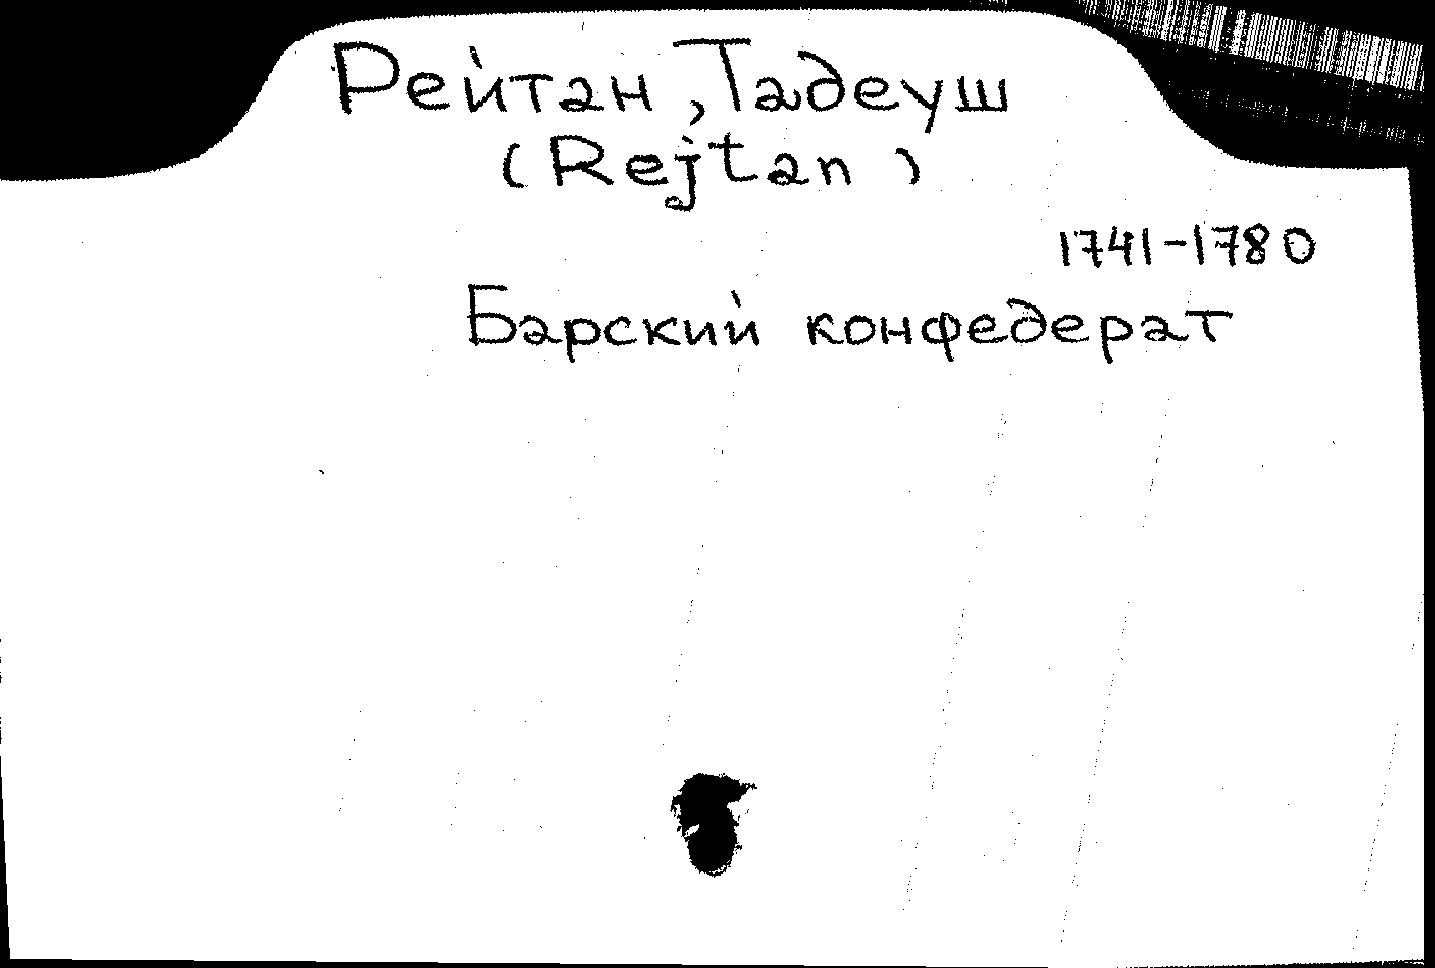 Рейтан, Тадеуш
(Rejtan)
1741-1780
Барский конфедерат